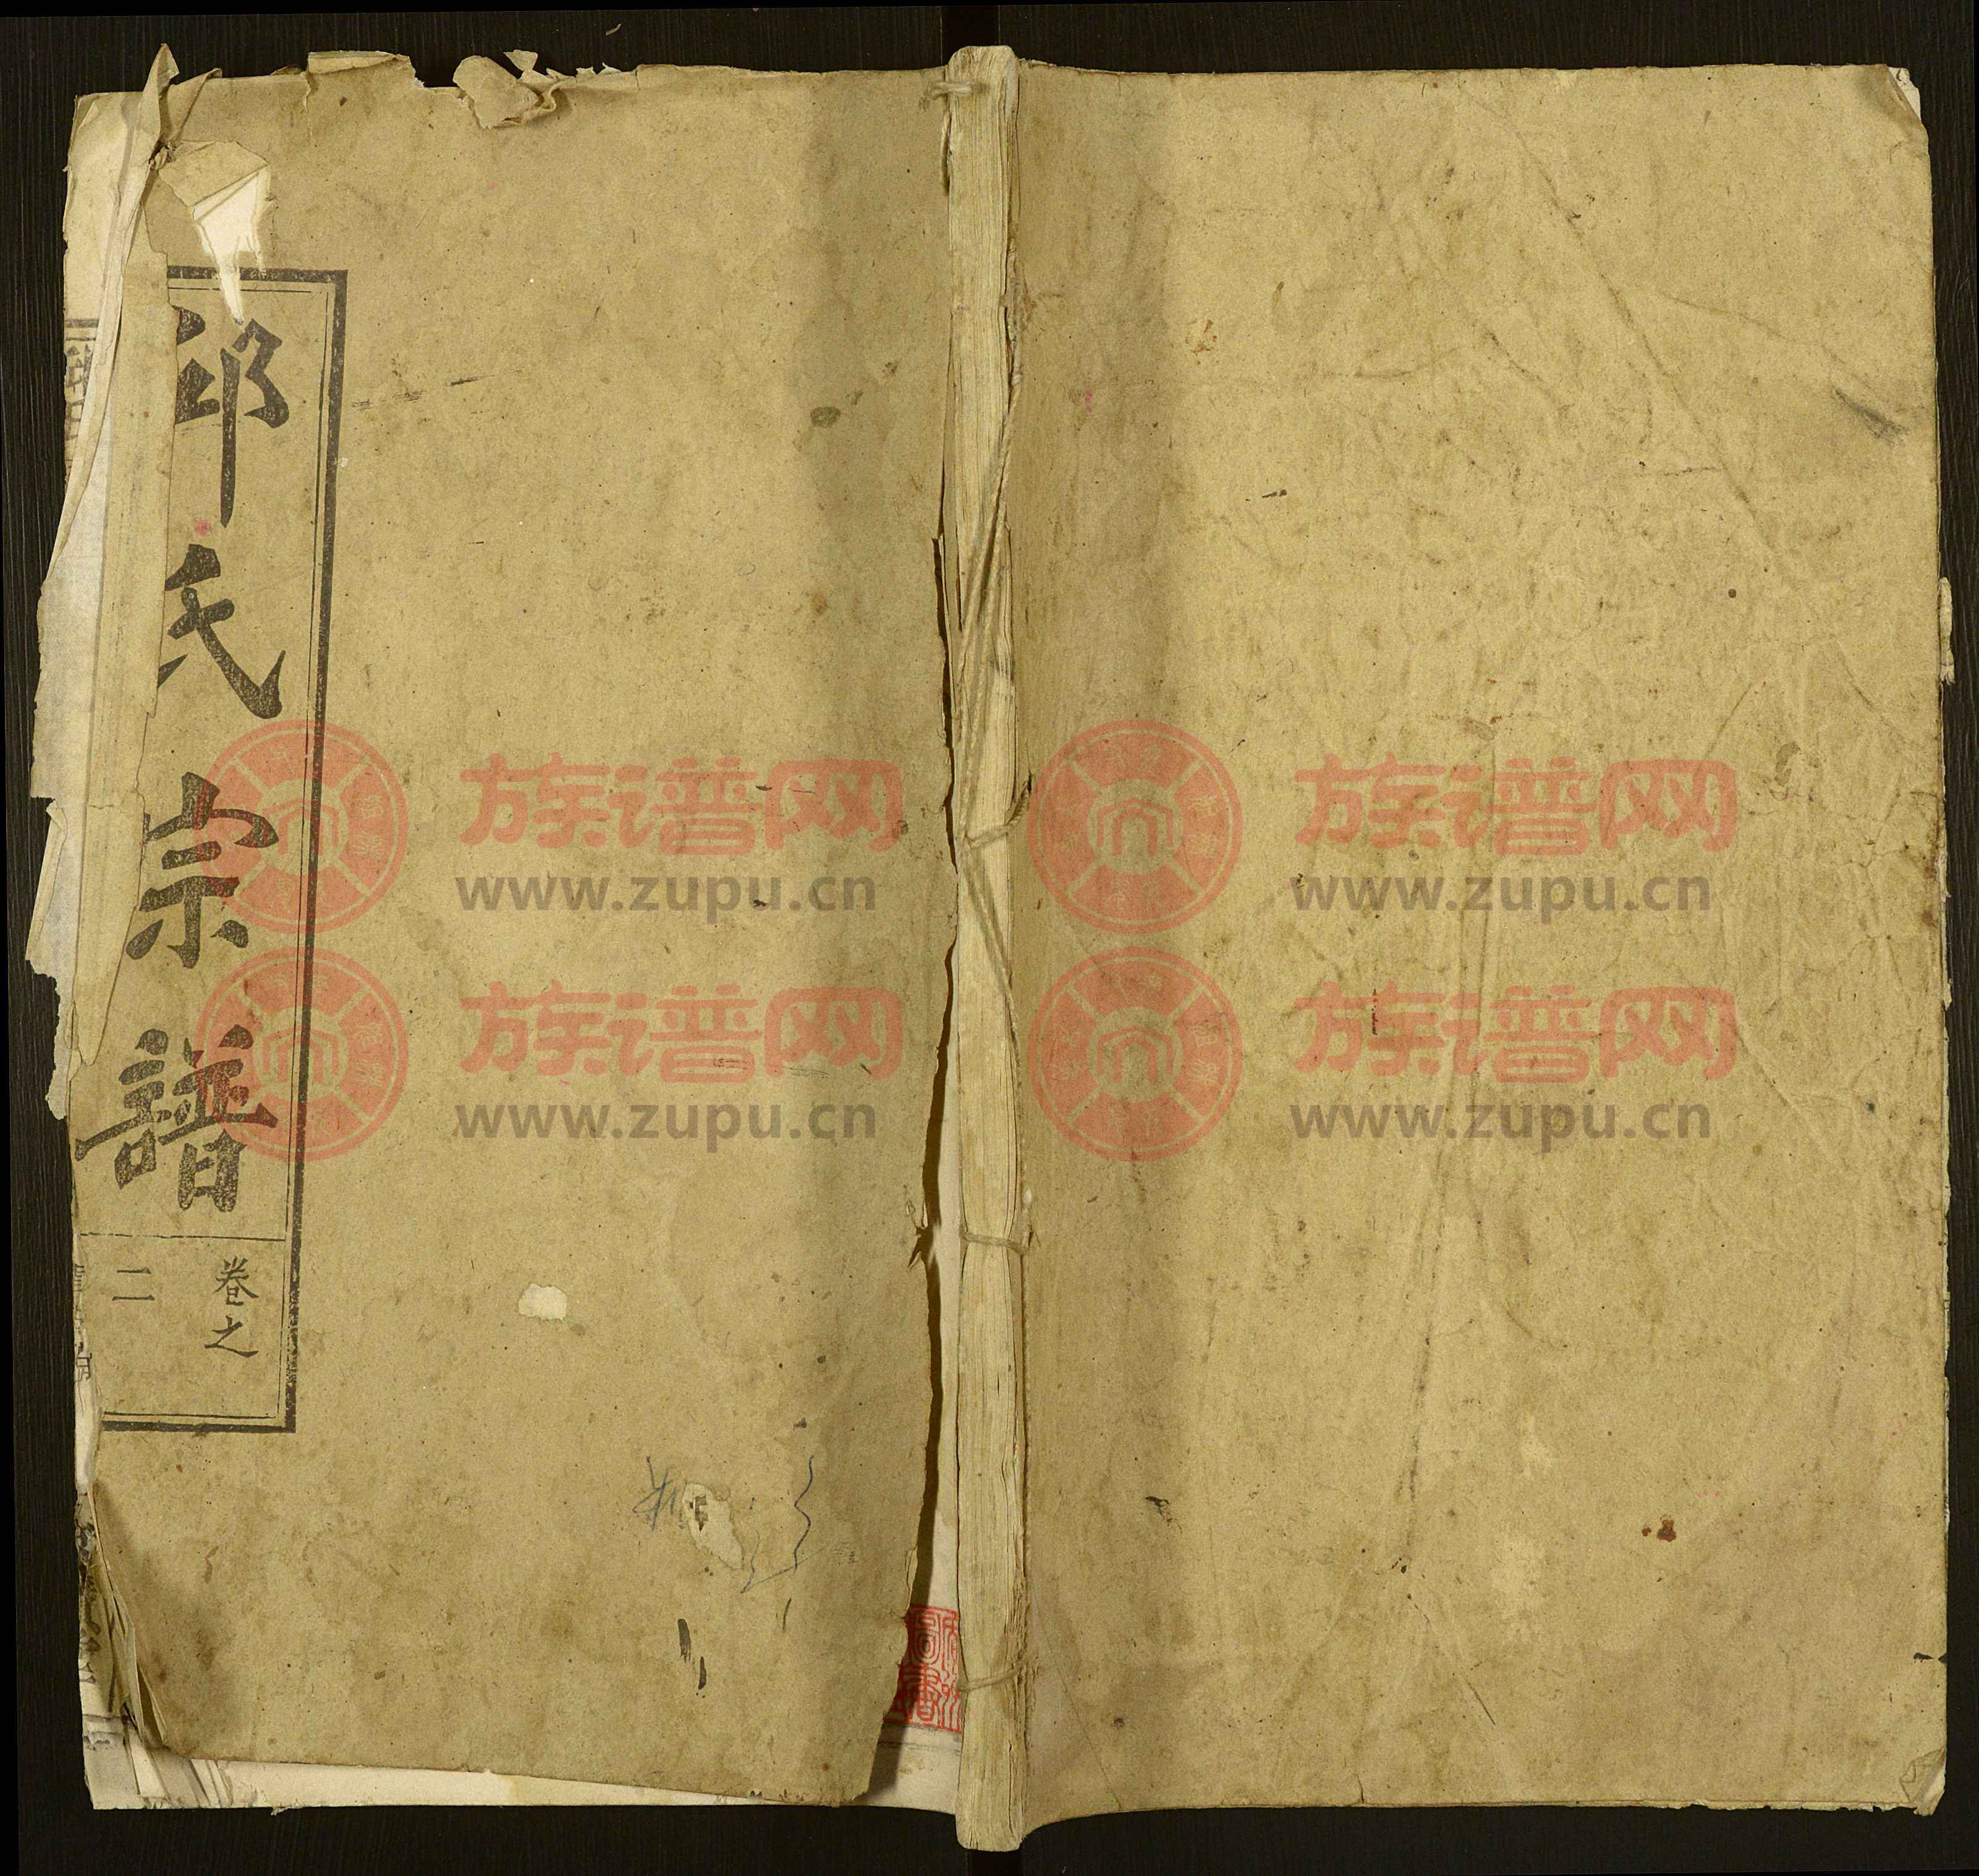 邱氏宗譜
卷之
二
族谱网
www.zupu.cn
族谱网
www.zupu.cn
族谱网
www.zupu.cn
族谱网
www.zupu.cn